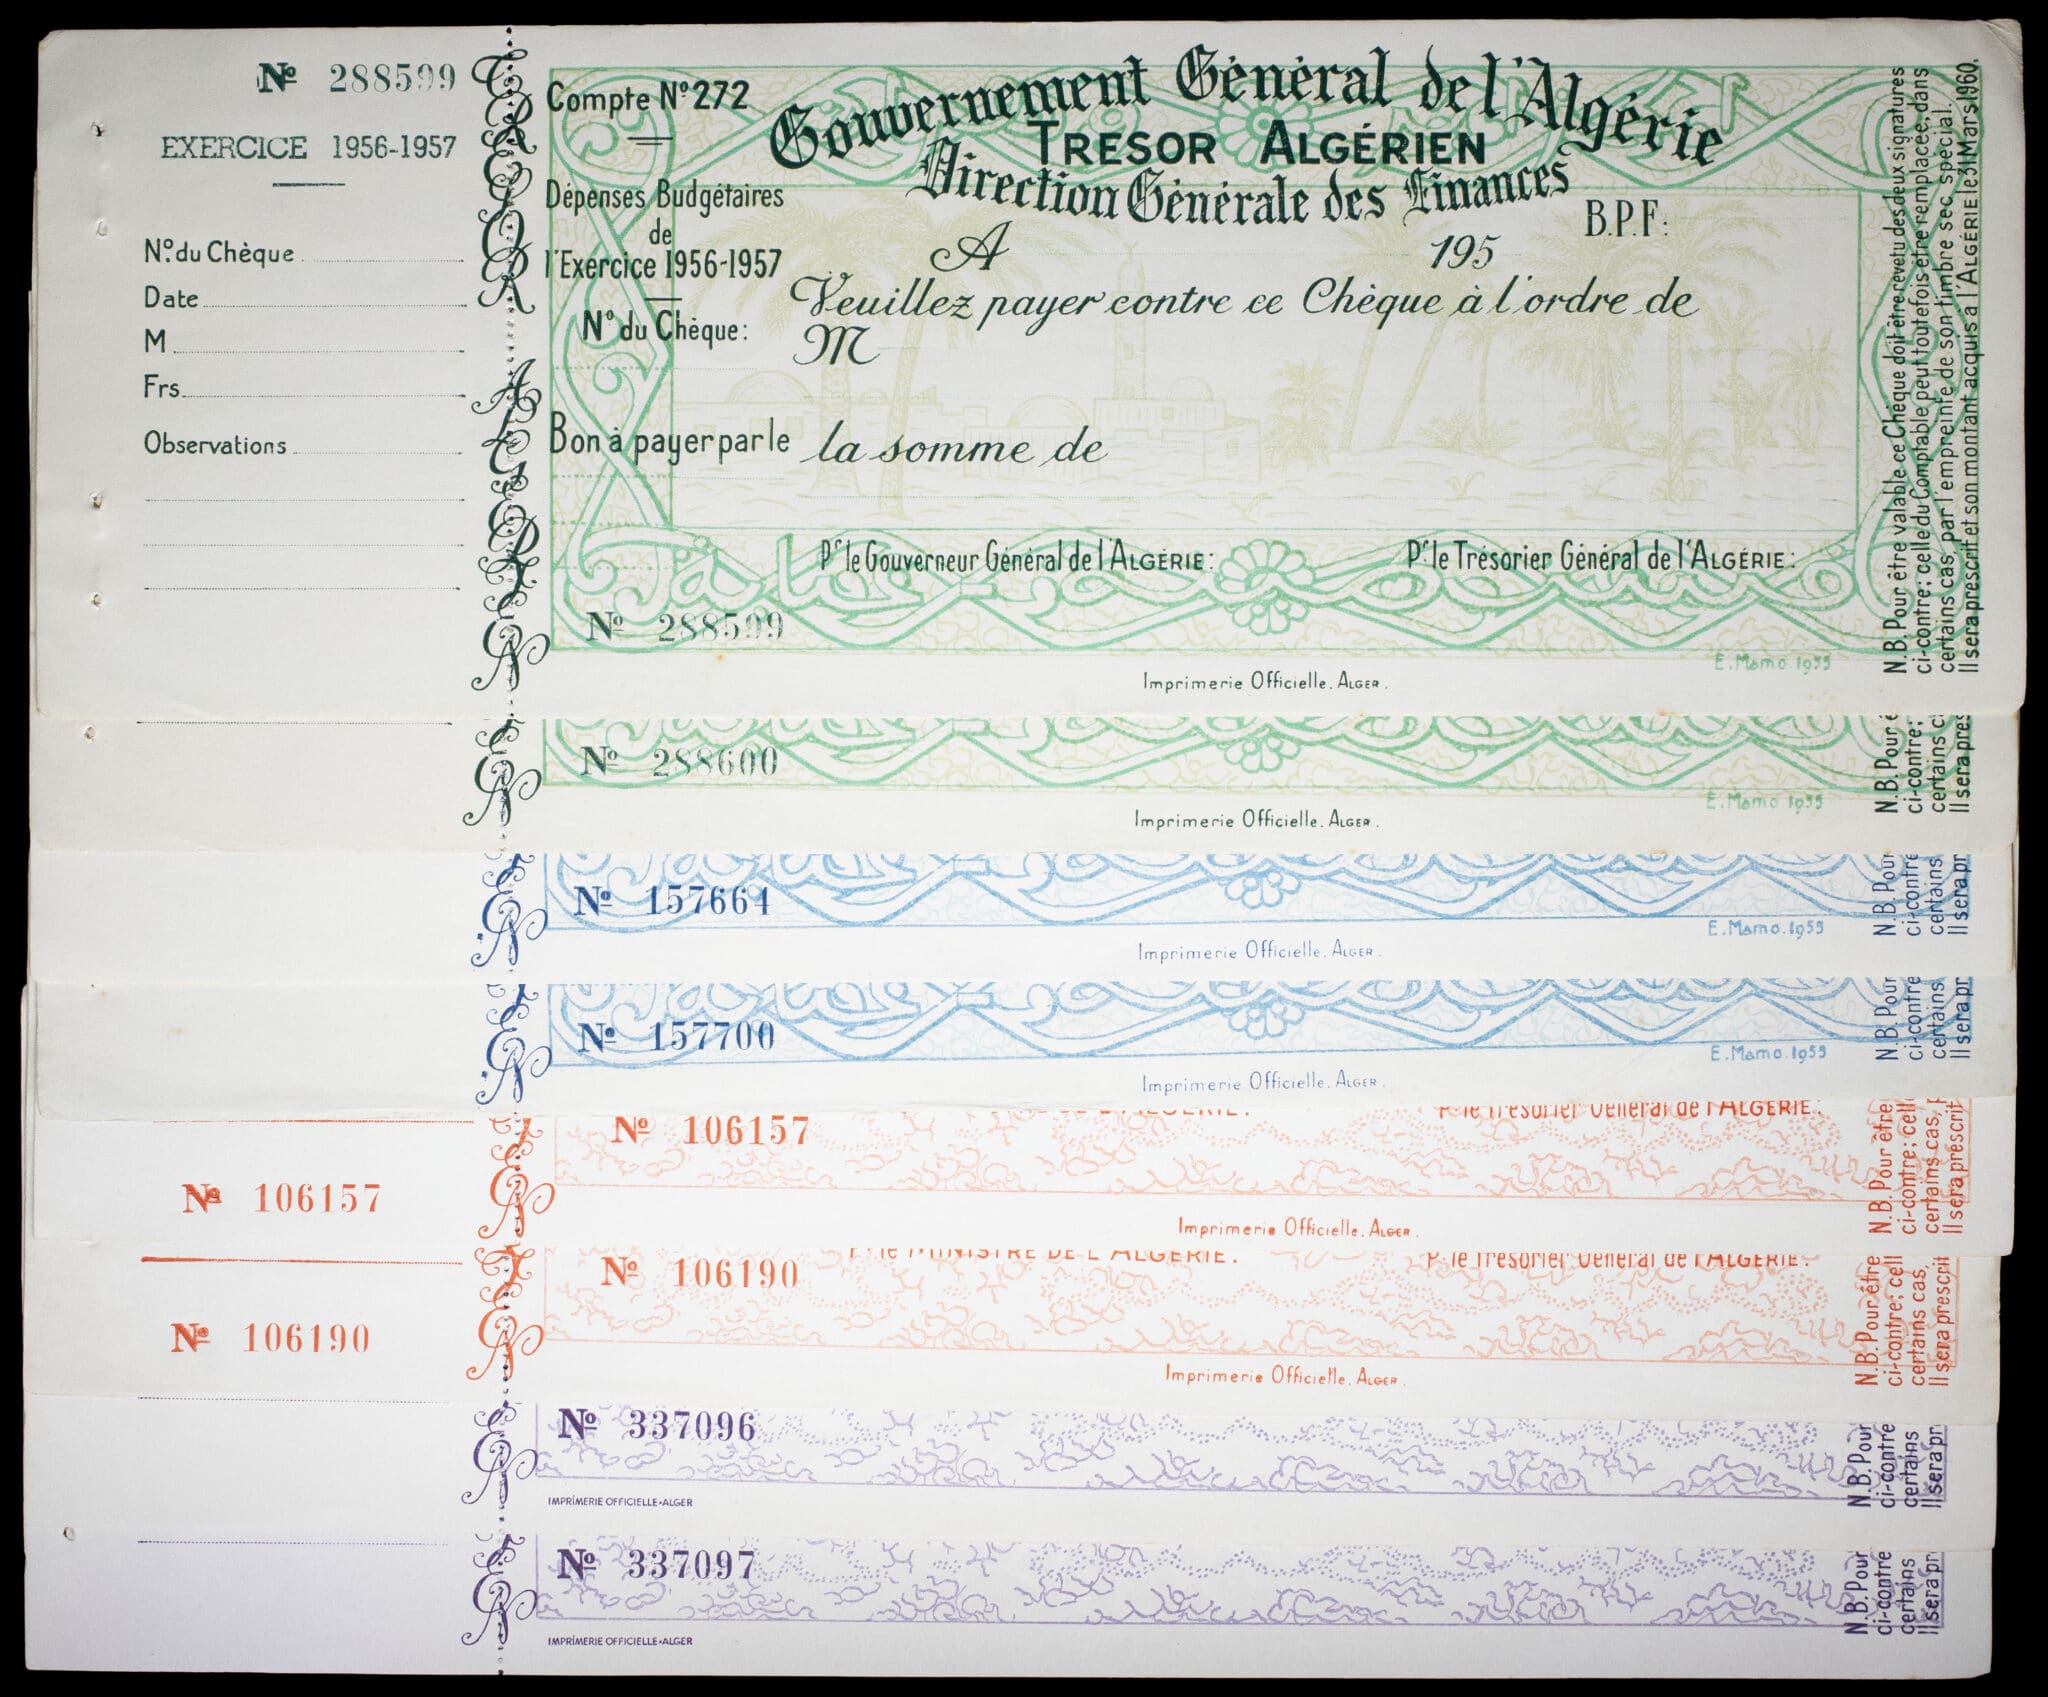 № 288599
EXERCICE 1956-1957
N.º du Chèque
Date
M
Frs.
Observations
TRÉSOR ALGÉRIEN
Compte Nº 272
Dépenses Budgétaires
de
l'Exercice 1956-1957
Nº du Chèque:
Bon à payer par le
№ 288599
Gouvernement Général de l'Algérie
TRESOR ALGÉRIEN
Direction Générale des Finances
B.P.F:
A 195
Veuillez payer contre ce Chèque à l'ordre de
M
la somme de
Pr le Gouverneur Général de l'ALGÉRIE:
Pr le Trésorier Général de l'ALGÉRIE:
E. Mamo. 1955
Imprimerie Officielle. ALGER.
N.B. Pour être valable ce Chèque doit être revêtu des deux signatures
ci-contre; celle du Comptable peut toutefois être remplacée, dans
certains cas, par l'empreinte de son timbre sec spécial.
Il sera prescrit et son montant acquis à l'ALGÉRIE le 31 Mars 1960.
№ 288600
E. Mamo 1955
Imprimerie Officielle. ALGER.
N.B. Pour
ci-contre;
certains
Il sera pres
№ 157664
E. Mamo. 1955
Imprimerie Officielle. ALGER.
N.B. Pour
ci-contre
certains
Il sera pr
№ 157700
E. Mamo. 1955
Imprimerie Officielle. ALGER.
N.B. Pour
ci-contre
certains
Il sera pr
№ 106157
Pr le Trésorier Général de l'ALGÉRIE:
№ 106157
Imprimerie Officielle. ALGER.
N.B. Pour être
ci-contre; celle
certains cas, p
Il sera prescrit
Pr le MINISTRE DE L'ALGÉRIE.
Pr le Trésorier Général de l'ALGÉRIE:
№ 106190
№ 106190
Imprimerie Officielle. ALGER.
N.B. Pour être
ci-contre; cell
certains cas,
Il sera prescrit
№ 337096
IMPRIMERIE OFFICIELLE-ALGER
N.B. Pour
ci-contre
certains
Il sera pr
№ 337097
IMPRIMERIE OFFICIELLE-ALGER
N.B. Pour
ci-contre
certains
Il sera pr